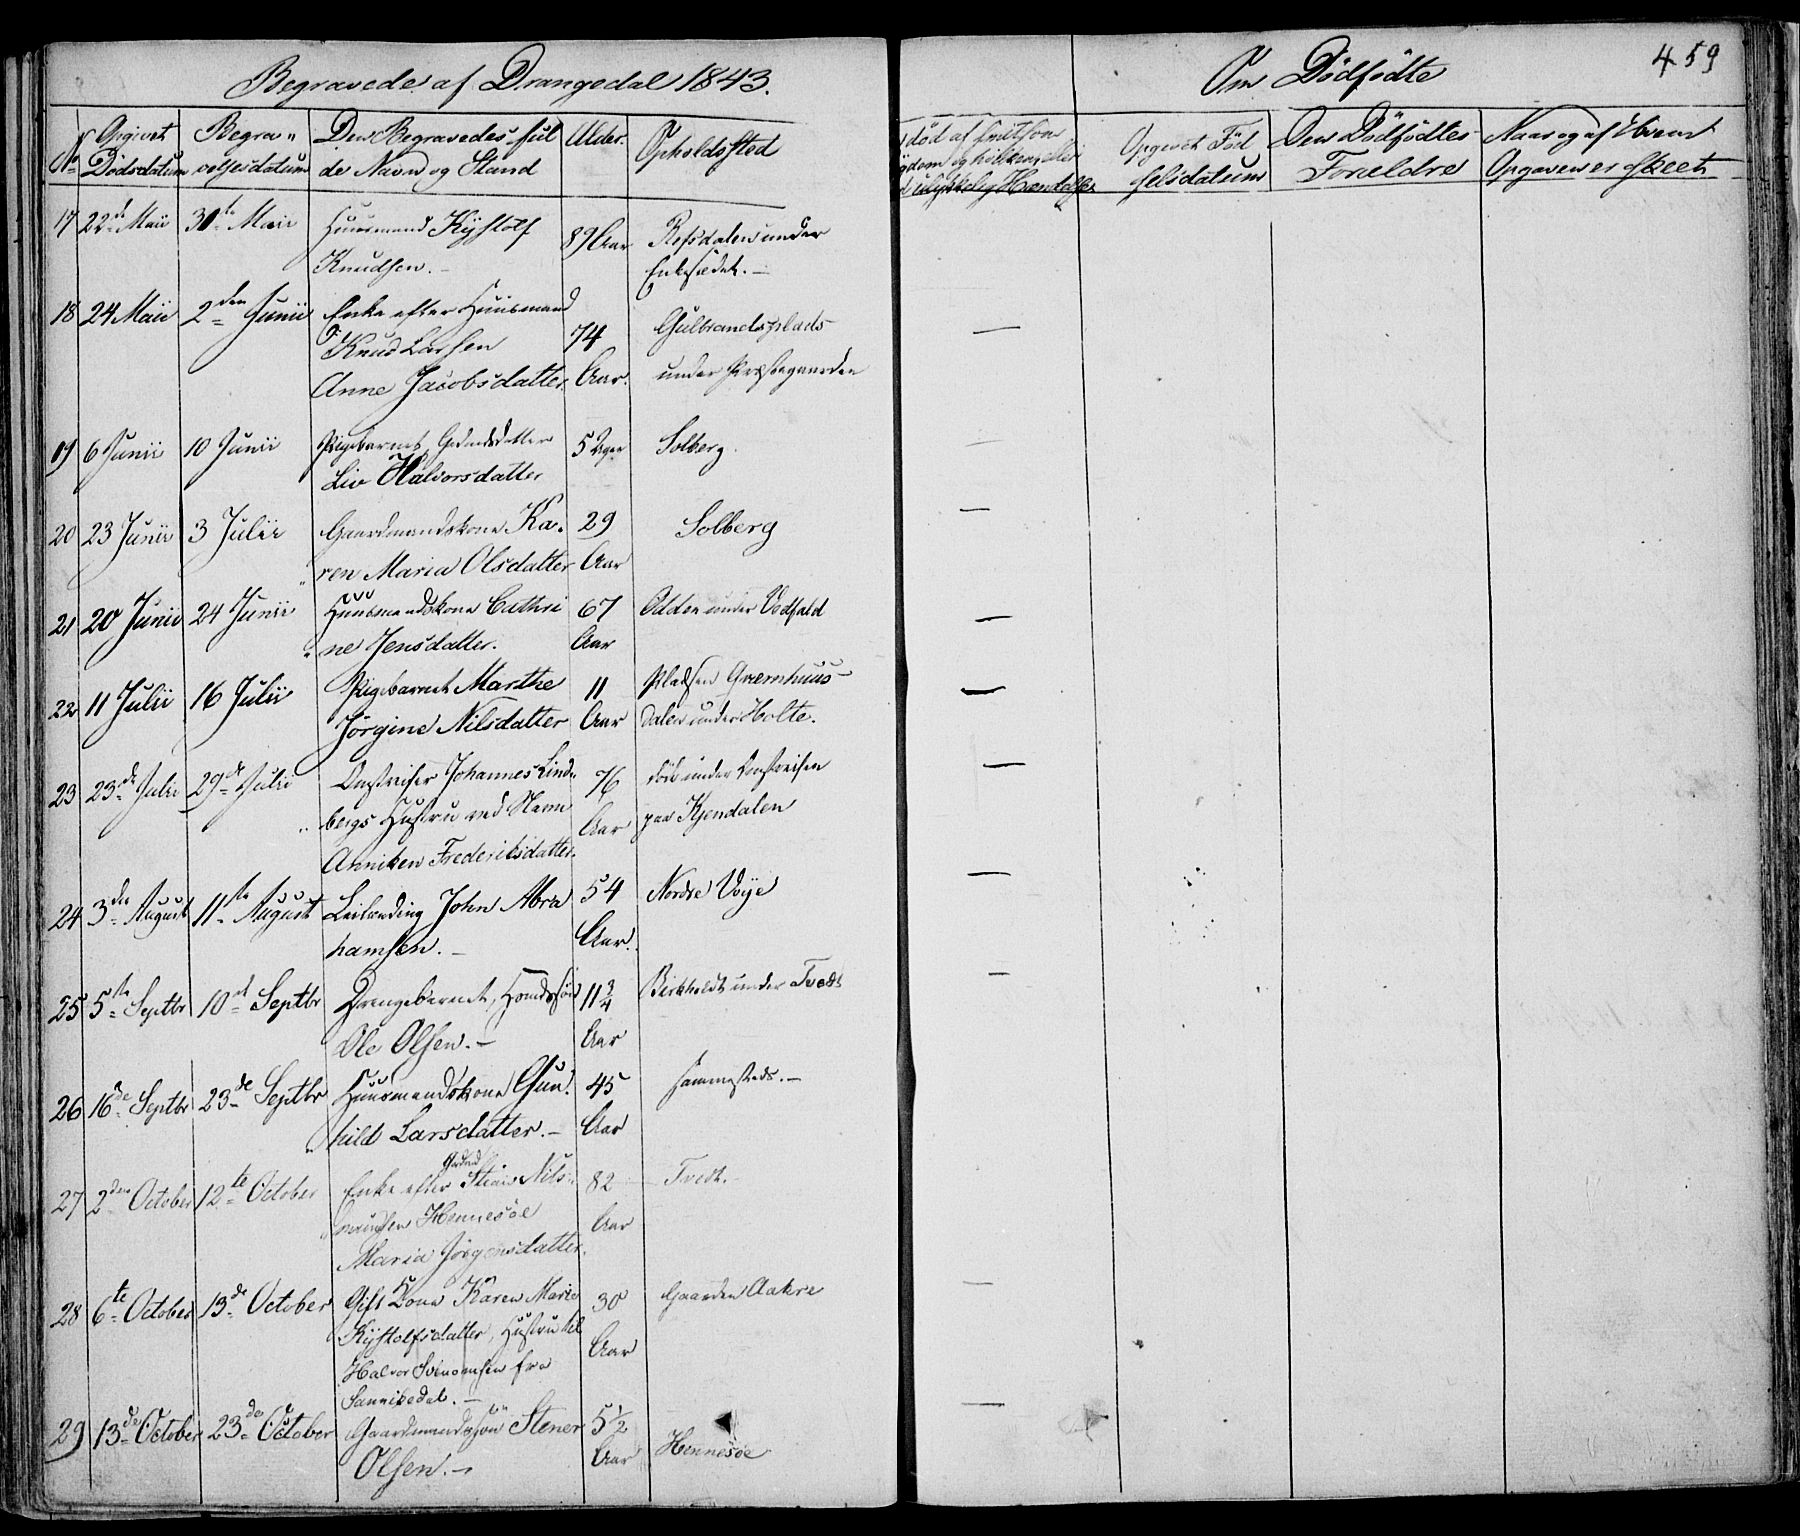 Begravede af Drangedal 1843.
Om Dødfødte
459
No
Opgivet Dødsdatum
Begravelsesdatum
Den Begravedes fulde Navn og Stand
Alder.
Opholdssted
Opgivet Fødselsdatum
Den Dødfødtes Forældre
Naar og af Hvem Opgaven er skeet
17 22de Maii 30te Maii Huusmand Kjøstolf 89 Aar Refsdalen under
Knudsen. Enkesædet.
18 24 Maii 2den Junii Enke efter Huusmand
Knud Larsen 74 Gulbrandsplads
Anne Jacobsdatter. Aar. under Præstegaarden
19 6 Junii 10 Junii Pigebarnet, Gaardmdsdatter 5 Uger Solberg.
Liv Halvorsdatter
20 23 Junii 3 Julii Gaardmandskone Ka- 29 Solberg
ren Maria Olsdatter Aar
21 20 Junii 24 Junii Huusmandskone Cathri 67 Odden under Vedfald
ne Jensdatter. Aar
22 11 Julii 16 Julii Pigebarnet Marthe 11 Pladsen Grærnhuus-
Jørgine Nilsdatter Aar dalen under Holte.
23 23de Julii 29de Julii Omstreifer Johannes Lind- 76 døde under Omstreifen
bergs Hustru ved Navn Aar paa Kjendalen
Anniken Frederiksdatter.
24 3die August 11te August Leilænding John Abra 54 Nordre Voje
hamsen. Aar.
25 5te Septbr 10de Septbr Drengebarnet, Hmdssøn 11 3/4 Birkholdt under Tvedt
Ole Olsen. Aar
26 16de Septbr 23de Septbr Huusmandskone Gun- 45 sammesteds.
hild Larsdatter. Aar
27 2den October 12te October Enke efter Gaardmd Nils 82 Tvedt.
Hennesøe Aar
Maria Jørgensdatter.
28 6te October 13de October Gift Kone Karen Marie 30 Gaarden Aakre
Kjøstolfsdatter, Hustru til Aar
Halvor Svenomsen fra
Sannikedal.
29 13de October 23de October Gaardmandssøn Stener 5 1/2 Hennesøe
Olsen. Aar